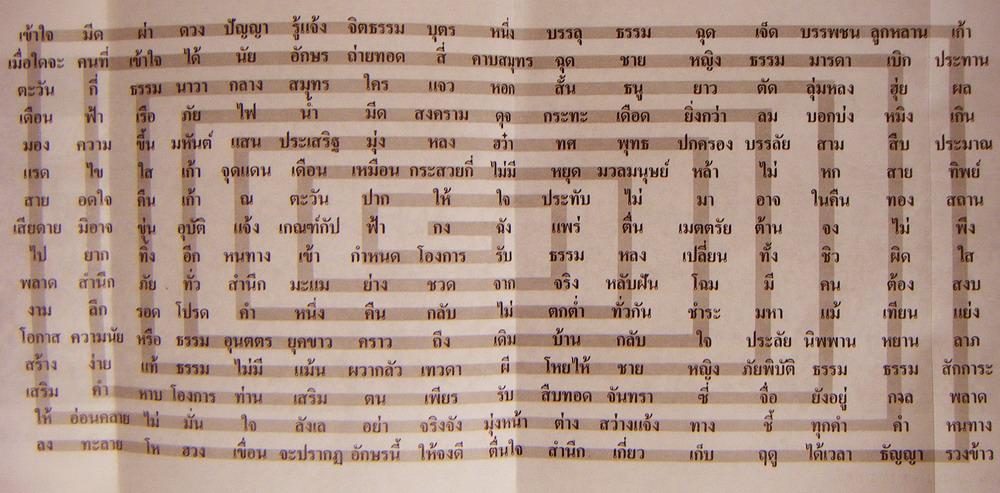 เข้าใจ มืด ผ่า ดวง ปัญญา รู้แจ้ง จิตธรรม บุตร หนึ่ง บรรลุ ธรรม ฉุด เจ็ด บรรพชน ลูกหลาน เก้า
เมื่อใดจะ คนที่ เข้าใจ ได้ นัย อักษร ถ่ายทอด สี่ คาบสมุทร ฉุด ชาย หญิง ธรรม มารดา เบิก ประทาน
ตะวัน กี่ ธรรม นาวา กลาง สมุทร ใคร แจว หอก สั้น ธนู ยาว ตัด ลุ่มหลง ฮุ่ย ผล
เดือน ฟ้า เรือ ภัย ไฟ น้ำ มืด สงคราม ดุจ กระทะ เดือด ยิ่งกว่า ลม บอกบ่ง หมิง เกิน
มอง ความ ขึ้น มหันต์ แสน ประเสริฐ มุ่ง หลง ฮว๋า ทศ พุทธ ปกครอง บรรลัย สาม สืบ ประมาณ
แรด ไข ใส เก้า จุดแดน เดือน เหมือน กระสวยกี่ ไม่มี หยุด มวลมนุษย์ หล้า ไม่ หก สาย ทิพย์
สาย อดใจ คืน เก้า ณ ตะวัน ปาก ให้ ใจ ประทับ ไม่ มา อาจ ในคืน ทอง สถาน
เสียดาย มิอาจ ขุ่น อุบัติ แจ้ง เกณฑ์กัป ฟ้า กง ฉัง แพร่ ตื่น เมตตรัย ต้าน จง ไม่ พึง
ไป ยาก ทิ้ง อีก หนทาง เข้า กำหนด โองการ รับ ธรรม หลง เปลี่ยน ทั้ง ชิว ผิด ใส
พลาด สำนึก ภัย ทั่ว สำนึก มะแม ย่าง ชวด จาก จริง หลับฝัน โฉม มี คน ต้อง สงบ
งาม ลึก รอด โปรด คำ หนึ่ง คืน กลับ ไม่ ตกต่ำ ทั่วกัน ชำระ มหา แม้ เทียน แย่ง
โอกาส ความนัย หรือ ธรรม อนุตตร ยุคขาว คราว ถึง เดิม บ้าน กลับ ใจ ประลัย นิพพาน หยาน ลาภ
สร้าง ง่าย แท้ ธรรม ไม่มี แม้น ผวากลัว เทวดา ผี โหยไห้ ชาย หญิง ภัยพิบัติ ธรรม ธรรม สักการะ
เสริม คำ หาบ โองการ ท่าน เสริม ตน เพียร รับ สืบทอด จันทรา ซี่ จื่อ ยังอยู่ กงล พลาด
ให้ อ่อนคลาย ไม่ มั่น ใจ ลังเล อย่า จริงจัง มุ่งหน้า ต่าง สว่างแจ้ง ทาง ชี้ ทุกคำ คำ หนทาง
ลง ทะลาย โห ฮวง เขื่อน จะปรากฏ อักษรนี้ ให้จงดี ตื่นใจ สำนึก เกี่ยว เก็บ ฤดู ได้เวลา ธัญญา รวงข้าว